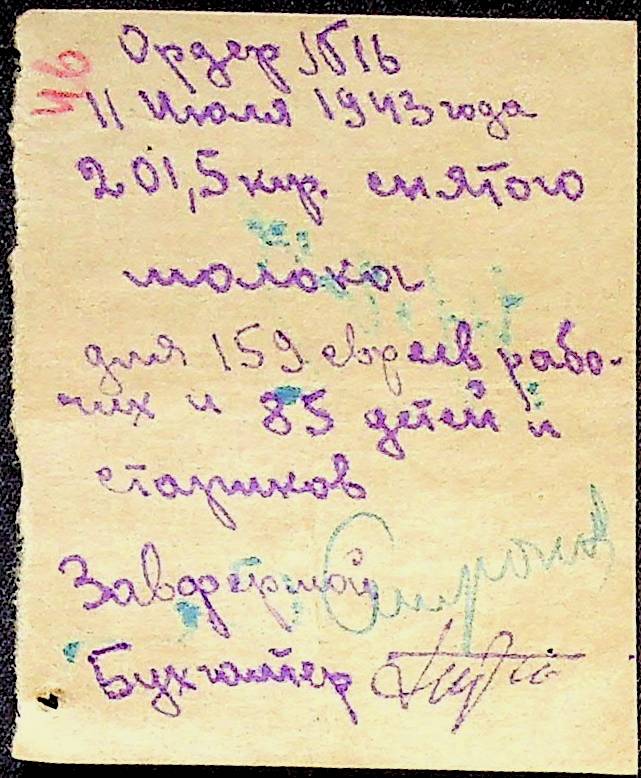 46
Ордер №16
11 Июля 1943 года
201,5 кгр. снятого
молока
для 159 евреев рабо-
чих и 85 детей и
стариков
Завфермой
Бухгалтер